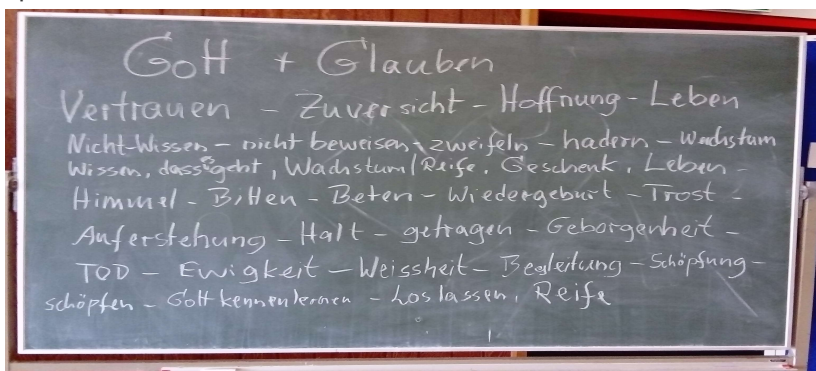 Gott + Glauben
Vertrauen - Zuversicht - Hoffnung - Leben
Nicht-Wissen - nicht beweisen - zweifeln - hadern - Wachstum
Wissen, dass es geht, Wachstum/Reife, Geschenk, Leben -
Himmel - Bitten - Beten - Wiedergeburt - Trost -
Auferstehung - Halt - getragen - Geborgenheit -
TOD - Ewigkeit - Weissheit - Begleitung - Schöpfung -
schöpfen - Gott kennenlernen - Loslassen, Reife